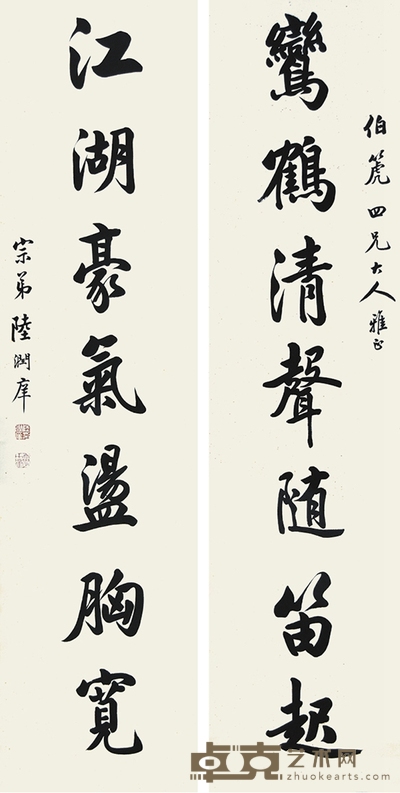 伯篪四兄大人雅正
鸞鶴清聲隨笛起
江湖豪氣盪胸寬
宗弟陸潤庠
卓克艺术网
zhuokearts.com